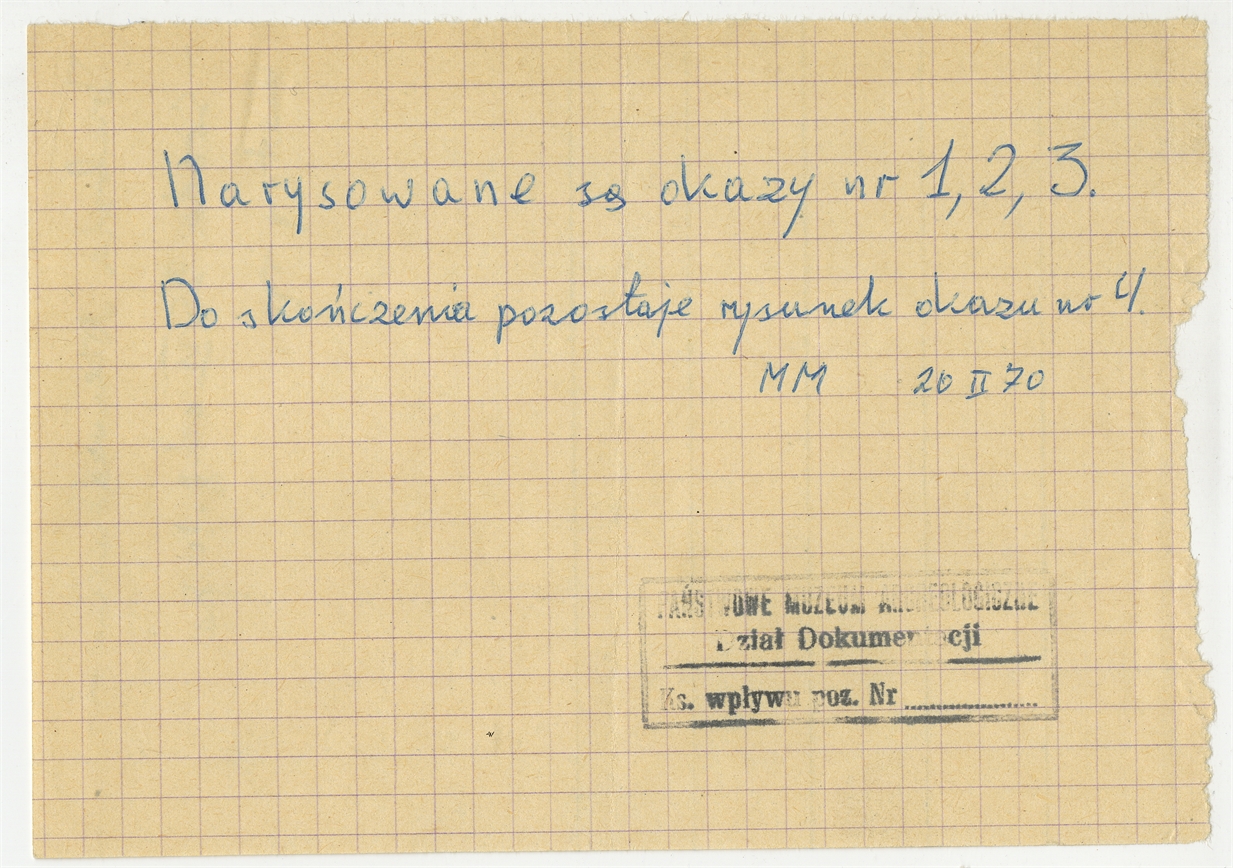 Narysowane są okazy nr 1, 2, 3.
Do skończenia pozostaje rysunek okazu nr 4.
MM 20 II 70
PAŃSTWOWE MUZEUM ARCHEOLOGICZNE
Dział Dokumentacji
Ks. wpływu poz. Nr